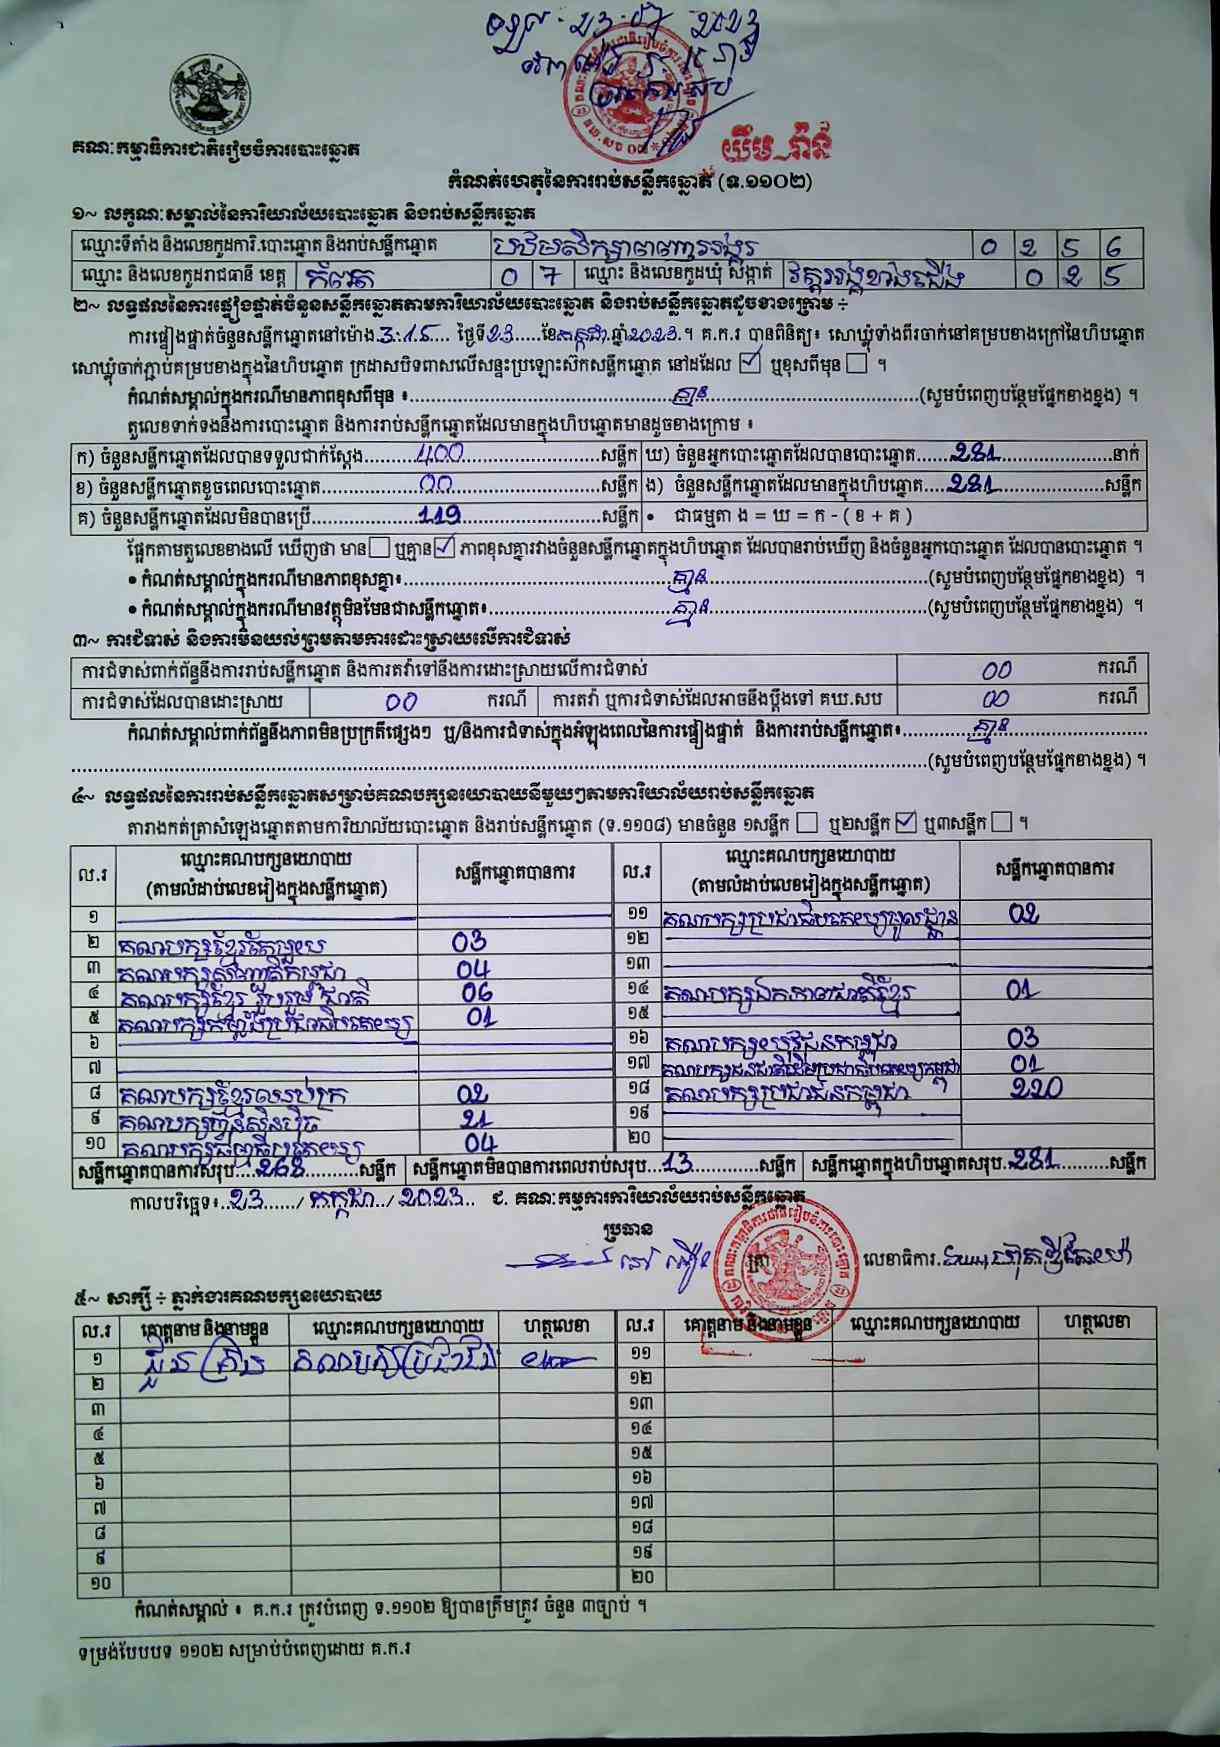 ទទួល ២៣-០៧ ២០២៣
យឹម រ៉ាន់
គណៈកម្មាធិការជាតិរៀបចំការបោះឆ្នោត
កំណត់ហេតុនៃការរាប់សន្លឹកឆ្នោត (ទ.១១០២)
១~ លក្ខណៈសម្គាល់នៃការិយាល័យបោះឆ្នោត និងរាប់សន្លឹកឆ្នោត
ឈ្មោះទីតាំង និងលេខកូដការិ.បោះឆ្នោត និងរាប់សន្លឹកឆ្នោត បឋមសិក្សា 0 2 5 6
ឈ្មោះ និងលេខកូដរាជធានី ខេត្ត កំពត 0 7 ឈ្មោះ និងលេខកូដឃុំ សង្កាត់ វត្តអង្គខាងជើង 0 2 5
២~ លទ្ធផលនៃការផ្ទៀងផ្ទាត់ចំនួនសន្លឹកឆ្នោតតាមការិយាល័យបោះឆ្នោត និងរាប់សន្លឹកឆ្នោតដូចខាងក្រោម ÷
ការផ្ទៀងផ្ទាត់ចំនួនសន្លឹកឆ្នោតនៅម៉ោង 3:15 ថ្ងៃទី 23 ខែ កក្កដា ឆ្នាំ 2023 ។ គ.ក.រ បានពិនិត្យ៖ សោឃ្លុំទាំងពីរចាក់នៅគម្របខាងក្រៅនៃហិបឆ្នោត
សោឃ្លុំចាក់ភ្ជាប់គម្របខាងក្នុងនៃហិបឆ្នោត ក្រដាសបិទពាសលើសន្ទះប្រឡោះស៊កសន្លឹកឆ្នោត នៅដដែល ☑ ឬខុសពីមុន ☐ ។
កំណត់សម្គាល់ក្នុងករណីមានភាពខុសពីមុន ៖ គ្មាន (សូមបំពេញបន្ថែមផ្នែកខាងខ្នង) ។
តួលេខទាក់ទងនឹងការបោះឆ្នោត និងការរាប់សន្លឹកឆ្នោតដែលមានក្នុងហិបឆ្នោតមានដូចខាងក្រោម ៖
ក) ចំនួនសន្លឹកឆ្នោតដែលបានទទួលជាក់ស្តែង 400 សន្លឹក ឃ) ចំនួនអ្នកបោះឆ្នោតដែលបានបោះឆ្នោត 281 នាក់
ខ) ចំនួនសន្លឹកឆ្នោតខូចពេលបោះឆ្នោត 00 សន្លឹក ង) ចំនួនសន្លឹកឆ្នោតដែលមានក្នុងហិបឆ្នោត 281 សន្លឹក
គ) ចំនួនសន្លឹកឆ្នោតដែលមិនបានប្រើ 119 សន្លឹក • ជាធម្មតា ង = ឃ = ក - ( ខ + គ )
ផ្អែកតាមតួលេខខាងលើ ឃើញថា មាន ☐ ឬគ្មាន ☑ ភាពខុសគ្នារវាងចំនួនសន្លឹកឆ្នោតក្នុងហិបឆ្នោត ដែលបានរាប់ឃើញ និងចំនួនអ្នកបោះឆ្នោត ដែលបានបោះឆ្នោត ។
• កំណត់សម្គាល់ក្នុងករណីមានភាពខុសគ្នា៖ គ្មាន (សូមបំពេញបន្ថែមផ្នែកខាងខ្នង) ។
• កំណត់សម្គាល់ក្នុងករណីមានវត្ថុមិនមែនជាសន្លឹកឆ្នោត៖ គ្មាន (សូមបំពេញបន្ថែមផ្នែកខាងខ្នង) ។
៣~ ការជំទាស់ និងការមិនយល់ព្រមតាមការដោះស្រាយលើការជំទាស់
ការជំទាស់ពាក់ព័ន្ធនឹងការរាប់សន្លឹកឆ្នោត និងការតវ៉ាទៅនឹងការដោះស្រាយលើការជំទាស់ 00 ករណី
ការជំទាស់ដែលបានដោះស្រាយ 00 ករណី ការតវ៉ា ឬការជំទាស់ដែលអាចនឹងប្តឹងទៅ គឃ.សប 00 ករណី
កំណត់សម្គាល់ពាក់ព័ន្ធនឹងភាពមិនប្រក្រតីផ្សេងៗ ឬ/និងការជំទាស់ក្នុងអំឡុងពេលនៃការផ្ទៀងផ្ទាត់ និងការរាប់សន្លឹកឆ្នោត៖ គ្មាន
(សូមបំពេញបន្ថែមផ្នែកខាងខ្នង) ។
៤~ លទ្ធផលនៃការរាប់សន្លឹកឆ្នោតសម្រាប់គណបក្សនយោបាយនីមួយៗតាមការិយាល័យរាប់សន្លឹកឆ្នោត
តារាងកត់ត្រាសំឡេងឆ្នោតតាមការិយាល័យបោះឆ្នោត និងរាប់សន្លឹកឆ្នោត (ទ.១១០៨) មានចំនួន ១សន្លឹក ☐ ឬ២សន្លឹក ☑ ឬ៣សន្លឹក ☐ ។
ល.រ ឈ្មោះគណបក្សនយោបាយ (តាមលំដាប់លេខរៀងក្នុងសន្លឹកឆ្នោត) សន្លឹកឆ្នោតបានការ ល.រ ឈ្មោះគណបក្សនយោបាយ (តាមលំដាប់លេខរៀងក្នុងសន្លឹកឆ្នោត) សន្លឹកឆ្នោតបានការ
១ ១១ គណបក្សប្រជាធិបតេយ្យមូលដ្ឋាន 02
២ គណបក្សខ្មែរតែមួយ 03 ១២
៣ គណបក្សសញ្ជាតិកម្ពុជា 04 ១៣
៤ គណបក្សខ្មែររួបរួមជាតិ 06 ១៤ គណបក្សឯកភាពជាតិខ្មែរ 01
៥ គណបក្សកម្លាំងប្រជាធិបតេយ្យ 01 ១៥
៦ ១៦ គណបក្សយុវជនកម្ពុជា 03
៧ ១៧ គណបក្សជនជាតិដើមប្រជាធិបតេយ្យកម្ពុជា 01
៨ គណបក្សខ្មែរឈប់ក្រ 02 ១៨ គណបក្សប្រជាជនកម្ពុជា 220
៩ គណបក្សហ៊្វុនស៊ិនប៉ិច 21 ១៩
១០ គណបក្សធម្មាធិបតេយ្យ 04 ២០
សន្លឹកឆ្នោតបានការសរុប 268 សន្លឹក សន្លឹកឆ្នោតមិនបានការពេលរាប់សរុប 13 សន្លឹក សន្លឹកឆ្នោតក្នុងហិបឆ្នោតសរុប 281 សន្លឹក
កាលបរិច្ឆេទ៖ 23 / កក្កដា / 2023 ជ. គណៈកម្មការការិយាល័យរាប់សន្លឹកឆ្នោត
ប្រធាន
ត្រា លេខាធិការ
៥~ សាក្សី ÷ ភ្នាក់ងារគណបក្សនយោបាយ
ល.រ គោត្តនាម និងនាមខ្លួន ឈ្មោះគណបក្សនយោបាយ ហត្ថលេខា ល.រ គោត្តនាម និងនាមខ្លួន ឈ្មោះគណបក្សនយោបាយ ហត្ថលេខា
១ គណបក្សប្រជាជន ១១
២ ១២
៣ ១៣
៤ ១៤
៥ ១៥
៦ ១៦
៧ ១៧
៨ ១៨
៩ ១៩
១០ ២០
កំណត់សម្គាល់ ៖ គ.ក.រ ត្រូវបំពេញ ទ.១១០២ ឱ្យបានត្រឹមត្រូវ ចំនួន ៣ច្បាប់ ។
ទម្រង់បែបបទ ១១០២ សម្រាប់បំពេញដោយ គ.ក.រ